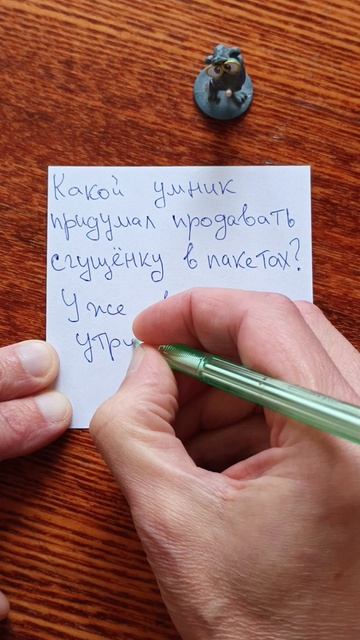 Какой умник
придумал продавать
сгущёнку в пакетах?
Уже